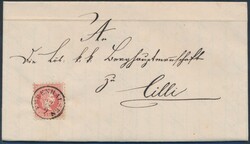 An
Die löb. k. k. Berghauptmannschaft
zu
Cilli